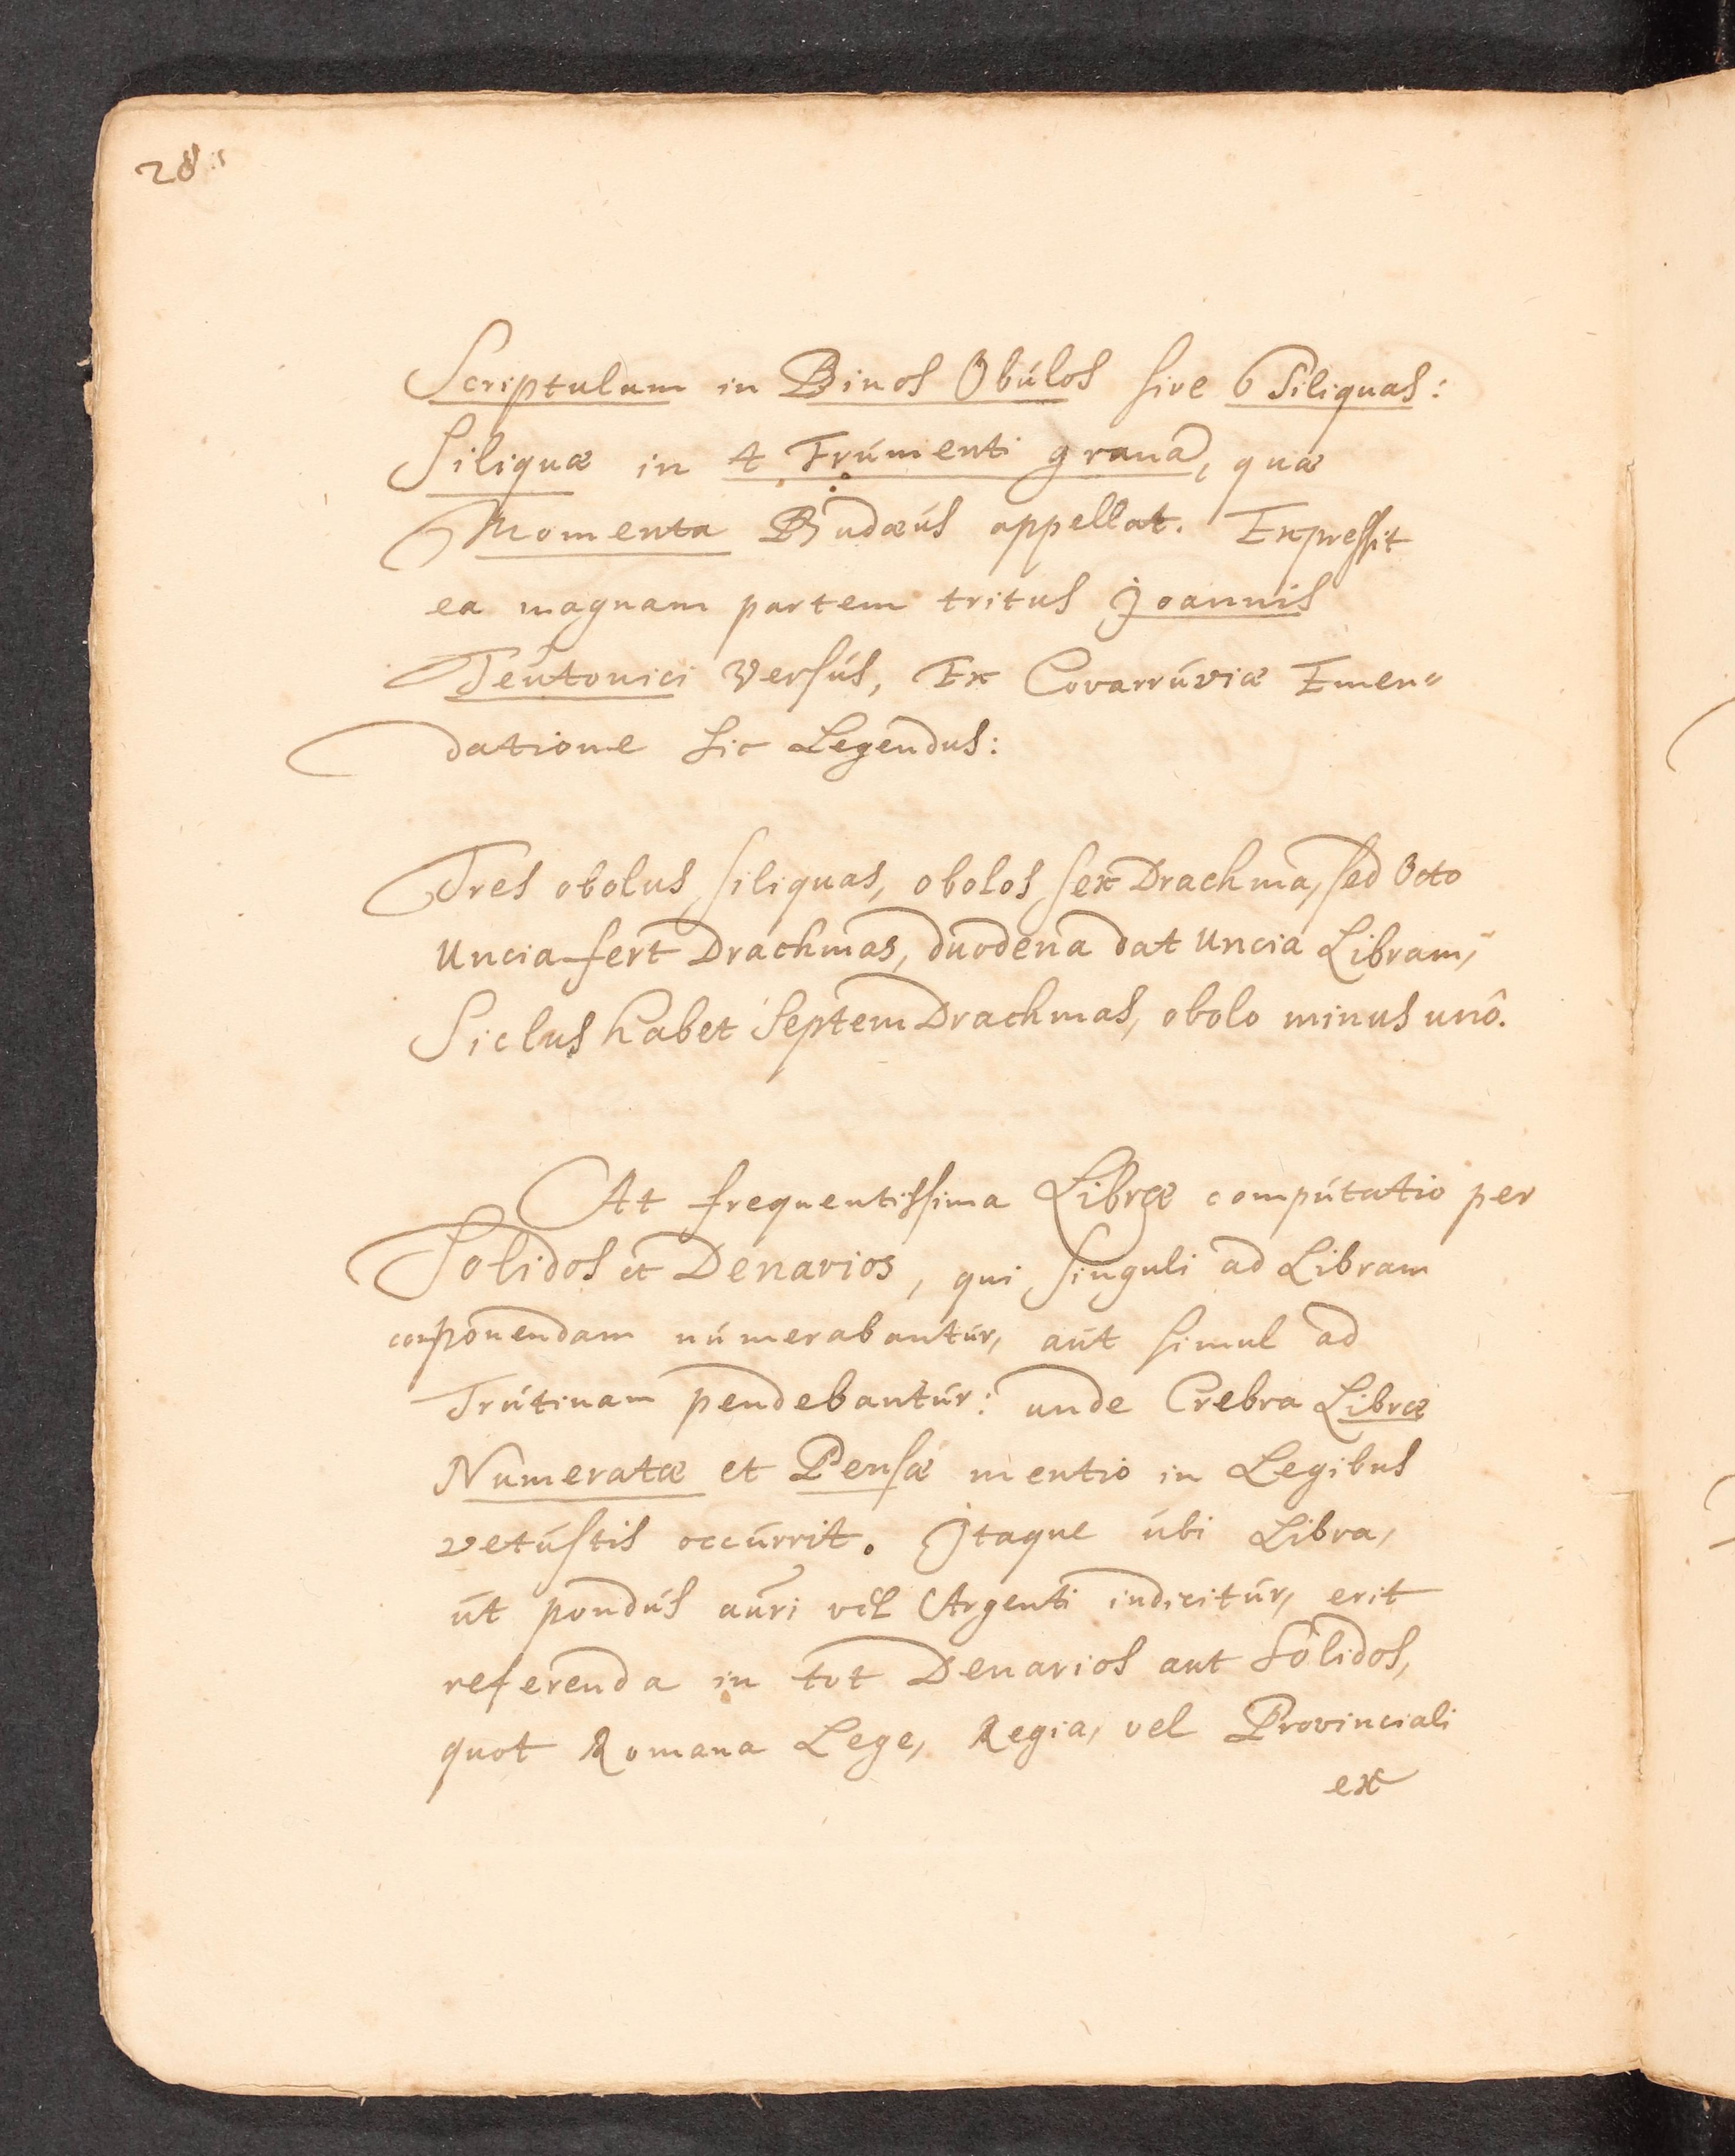 28
Scriptulum in Binos Obúlos sive 6 Siliquas:
Siliquæ in 4 Frúmenti grana, quæ
Momenta Budæús appellat. Expressit
ea magnam partem tritus Joannis
Teútonici Versús, Ex Covarrúviæ Emen"
datione sic Legendus:
Tres obolus siliquas, obolos sex Drachma, sed Octo
Uncia fert Drachmas, duodena dat Uncia Libram,
Siclus habet Septem Drachmas, obolo minus unô.
At frequentissima Libræ compútatio per
Solidos et Denarios, qui singuli ad Libram
componendam númerabantúr, aút simul ad
Trútinam pendebantúr: unde Crebra Libræ
Numeratæ et Pensæ mentio in Legibus
vetústis occúrrit. Jtaque úbi Libra,
út pondús aúri vel Argenti indicitúr, erit
referenda in tot Denarios aut Solidos,
quot Romana Lege, Regia, vel Provinciali
ex